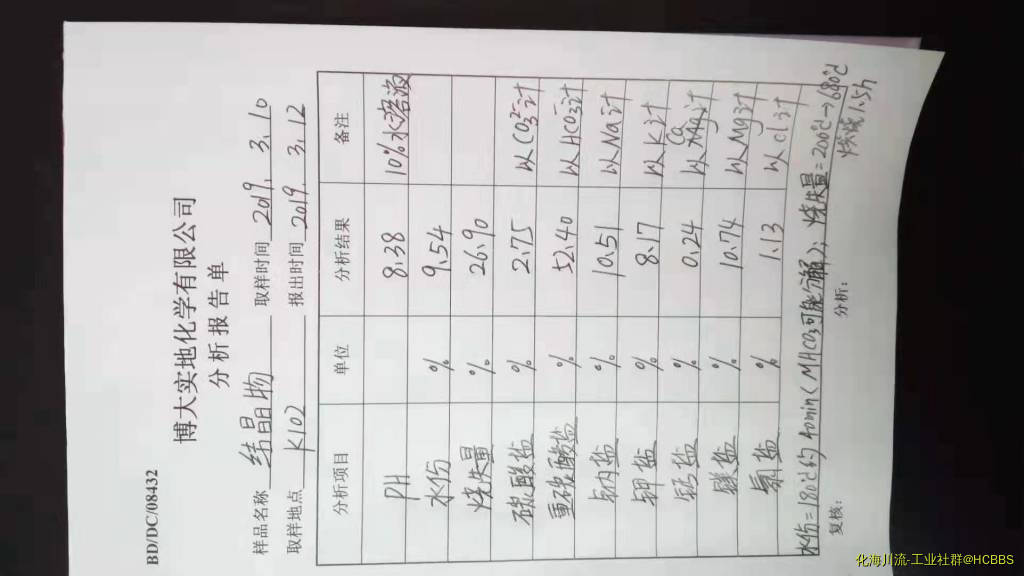 BD/DC/08432
博大实地化学有限公司
分析报告单
样品名称 结晶物 取样时间 2019.3.10
取样地点 K102 报出时间 2019.3.12
分析项目 单位 分析结果 备注
PH 8.38 10%水溶液
水份 % 9.54
烧失量 % 26.90
碳酸盐 % 2.75 以CO₃²⁻计
重碳酸盐 % 52.40 以HCO₃⁻计
钠盐 % 10.51 以Na计
钾盐 % 8.17 以K计
钙盐 % 0.24 以Ca计
镁盐 % 10.74 以Mg计
氯盐 % 1.13 以Cl计
水份=180℃约40min(MHCO₃可能分解); 烧失量=200℃→680℃
烧烧1.5h
复核: 分析:
化海川流-工业社群@HCBBS